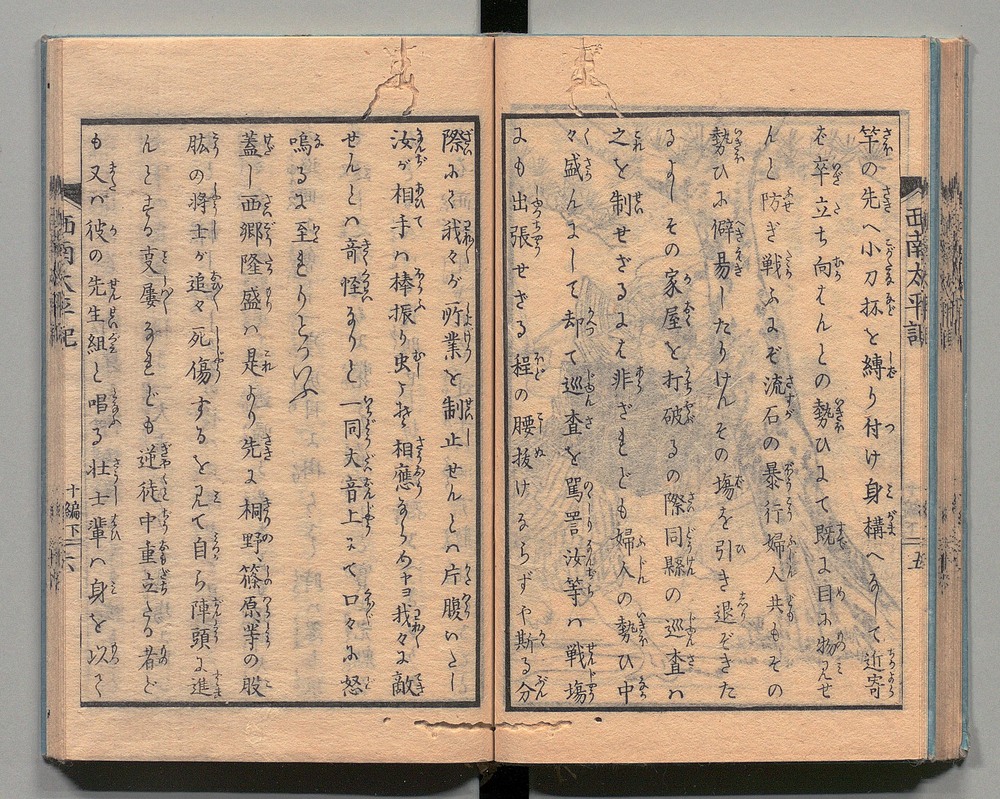 竿の先へ小刀抔を縛り付け身構へなして近寄
を卒立ち向はんとの勢ひにて既に目に物見せ
んと防ぎ戦ふにぞ流石の暴行婦人共もその
勢ひに僻易したりけんその塲を引き退ぞきた
るよしその家屋を打破るの際同縣の巡査ハ
之を制せざるにハ非ざれども婦人の勢ひ中
々盛んにして却て巡査を罵詈汝等ハ戦塲
にも出張せざる程の腰抜けならずや斯る分
際にて我々が所業を制止せんとハ片腹いたし
汝が相手ハ棒振り虫よそ相應ならめヤヨ我々に敵
せんとハ竒怪なりと一同大音上にて口々に怒
鳴るに至れりとかいふ
蓋し西郷隆盛ハ是より先に桐野篠原等の股
肱の將士が追々死傷するを見て自ら陣頭に進
んとする支屡なれども逆徒中重立たる者ど
も又ハ彼の先生組と唱る壮士輩ハ身を以て
西南太平記
五
西南太平記
十編下
六